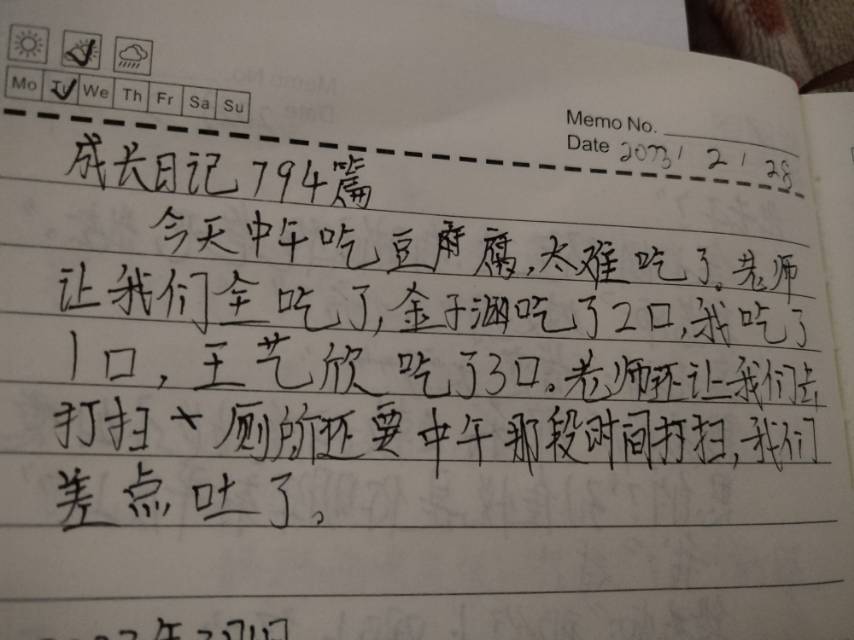 Mo Tu We Th Fr Sa Su
Memo No.
Date 2023 / 2 / 28
成长日记794篇
今天中午吃豆腐,太难吃了。老师
让我们全吃了,金子涵吃了2口,我吃了
1口,王艺欣吃了3口。老师还让我们去
打扫厕所还要中午那段时间打扫,我们
差点吐了。